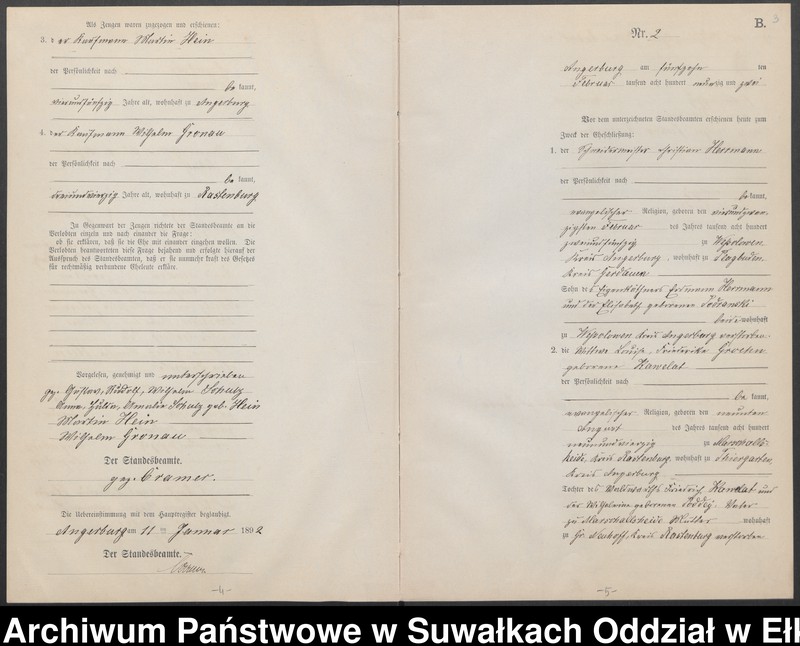 Als Zeugen waren zugezogen und erschienen:
3. der Kaufmann Martin Hein
der Persönlichkeit nach
be kannt,
Jahre alt, wohnhaft zu Angerburg
4. der Kaufmann Wilhelm Gronau
der Persönlichkeit nach
be kannt,
dreiundvierzig Jahre alt, wohnhaft zu Rastenburg
In Gegenwart der Zeugen richtete der Standesbeamte an die
Verlobten einzeln und nach einander die Frage:
ob sie erklären, daß sie die Ehe mit einander eingehen wollen. Die
Verlobten beantworteten diese Frage bejahend und erfolgte hierauf der
Ausspruch des Standesbeamten, daß er sie nunmehr kraft des Gesetzes
für rechtmäßig verbundene Eheleute erkläre.
Vorgelesen, genehmigt und unterschrieben
gez. Gustav, Rudolf, Wilhelm Schulz
Anna, Julia, Amalie Schulz geb. Hein
Martin Hein
Wilhelm Gronau
Der Standesbeamte.
gez. Cramer.
Die Uebereinstimmung mit dem Hauptregister beglaubigt.
Angerburg am 11 ten Januar 1892
Der Standesbeamte.
-4-
B.
3
Nr. 2
Angerburg am fünfzehn ten
Februar tausend acht hundert neunzig und zwei
Vor dem unterzeichneten Standesbeamten erschienen heute zum
Zweck der Eheschließung:
1. der Schneidermeister Christian Herrmann
der Persönlichkeit nach
be kannt,
evangelischer Religion, geboren den vierundzwan-
zigsten Februar des Jahres tausend acht hundert
zweiundfünfzig zu Wessolowen
Kreis Angerburg, wohnhaft zu Klagbuden
Kreis Gerdauen
Sohn des Eigenkäthners Erdmann Herrmann
und der Elisabeth geborenen
beide wohnhaft
zu Wessolowen Kreis Angerburg verstorben
2. die Wittwe Louise, Friederike Groeten
geborene Kawelat
der Persönlichkeit nach
be kannt,
evangelischer Religion, geboren den neunten
August des Jahres tausend acht hundert
neunundvierzig zu Marschalls-
heide, Kreis Rastenburg, wohnhaft zu Thiergarten,
Kreis Angerburg
Tochter des Waldwarths Friedrich Kawelat und
der Wilhelmine geborenen Poddig Vater
zu Marschallsheide Mutter wohnhaft
zu Gr. Neuhoff, Kreis Rastenburg verstorben
-5-
Archiwum Państwowe w Suwałkach Oddział w Ełk